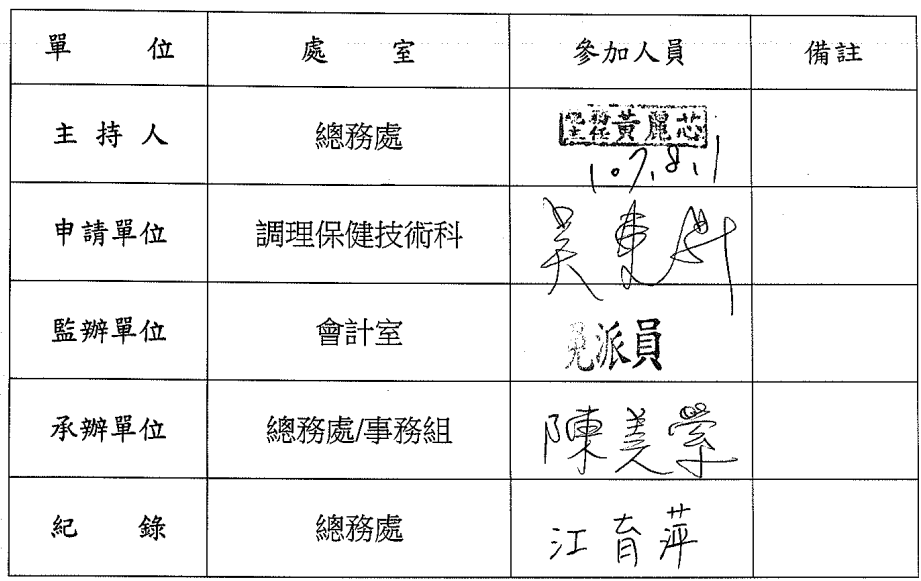 單 位 處 室 參加人員 備註
主 持 人 總務處 總務主任黃麗芯
107.8.1
申請單位 調理保健技術科 吳
監辦單位 會計室 免派員
承辦單位 總務處/事務組 陳美
紀 錄 總務處 江育萍